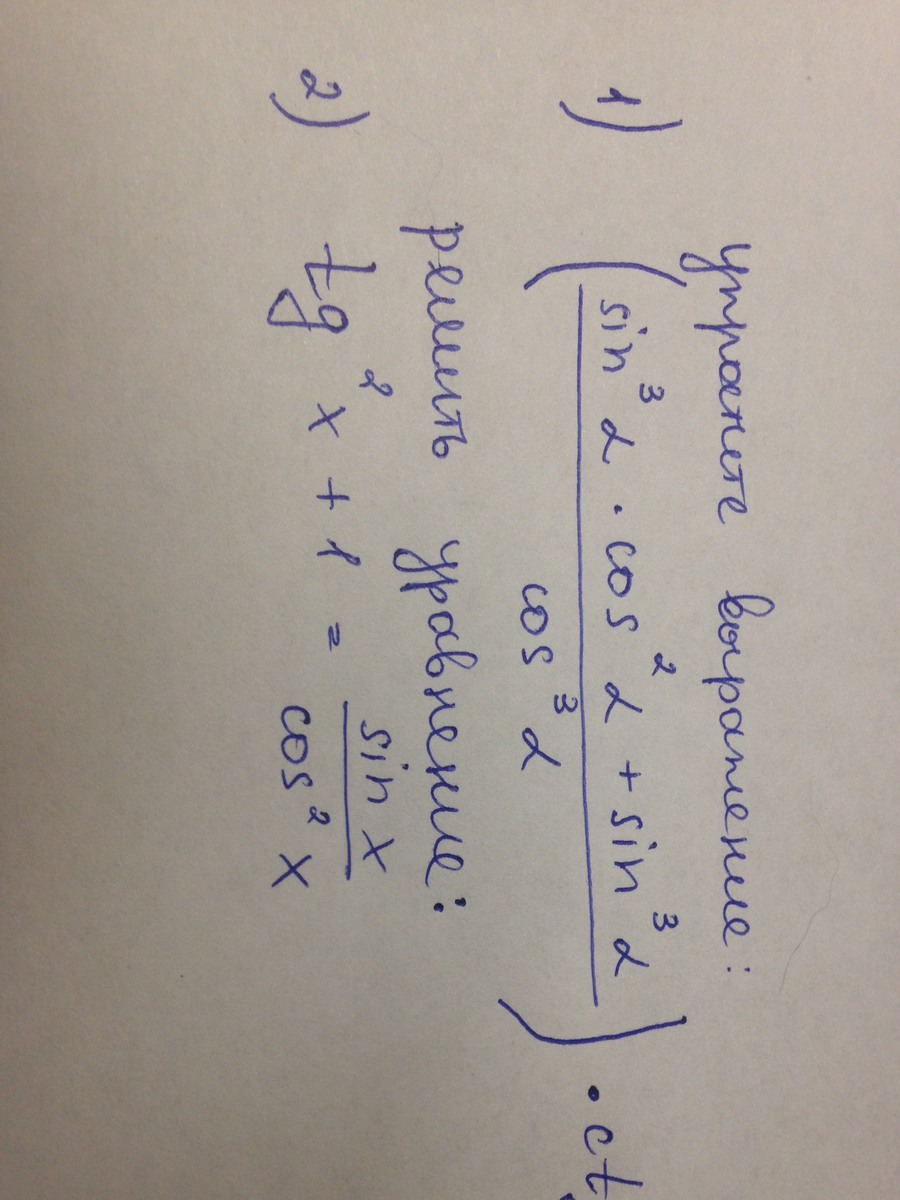 упрожнете выражение:
1) (sin³α · cos²α + sin³α / cos³α) · ct
решить уравнение:
2) tg²x + 1 = sin x / cos²x